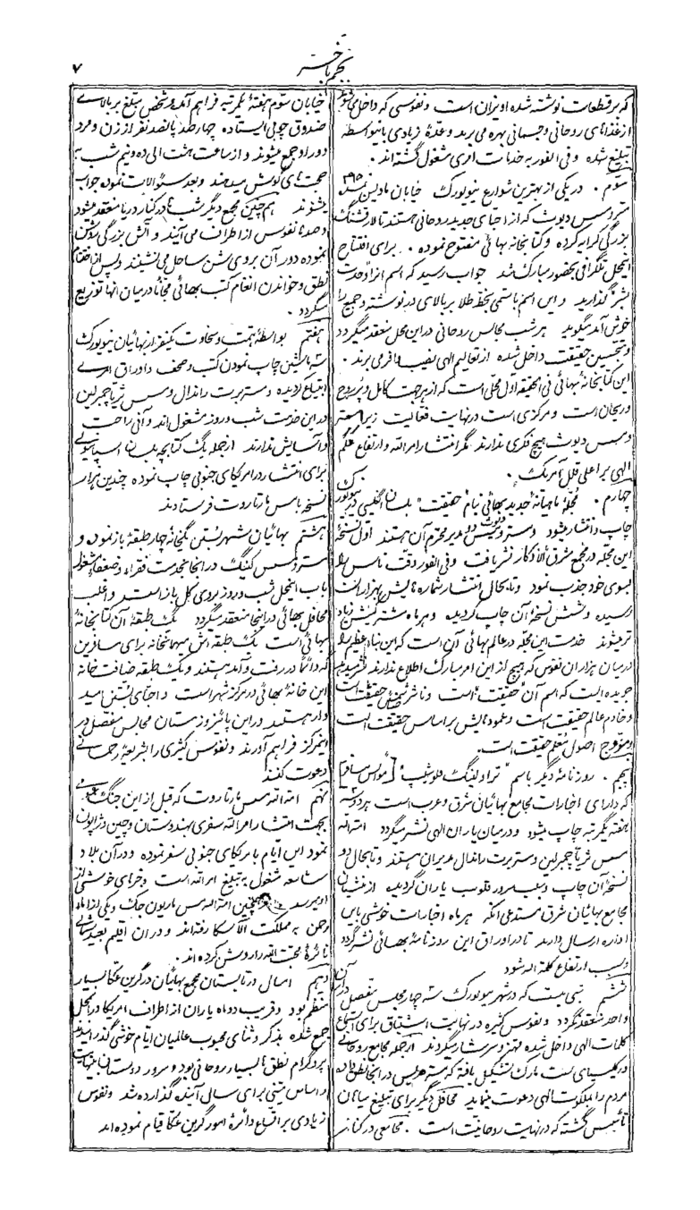 ۷
نجم باختر
که بر قطعات نوشته شده اویزان است و نفوسی که داخل میشوند
از غذاهای روحانی و جسمانی بهره می برند و عدهٔ زیادی باینواسطه
تبلیغ شده و فی الفور به خدمات امری مشغول گشته اند.
سوم. در یکی از بهترین شوارع نیویورک خیابان مادیسن
مسس دیوث که از احبای جدید روحانی هستند تالار قشنگ
بزرگی کرایه کرده و کتابخانه بهائی مفتوح نموده. برای افتتاح
اینمحل تلگرافی بحضور مبارک شد جواب رسید که اسم انرا وحدت
بشر گذارید و این اسم باسمی بخط طلا بر بالای در نوشته و جمیع را
خوش آمد میگوید هر شب مجالس روحانی در این محل منعقد میگردد
و متحسین حقیقت داخل شده از تعالیم الهی نصیب وافر می برند.
این کتابخانهٔ بهائی فی الحقیقه اول محلی است که از هر جهت کامل و پر روح
و ریحان است و مرکزی است در نهایت فعالیت زیرا مستر
و مسس دیوث هیچ فکری ندارند مگر انتشار امر الله و ارتفاع علم
الهی بر اعلی قلل آمریک.
چهارم. مجلهٔ ماهیانهٔ جدید بهائی بنام "حقیقت" بلسان انگلیسی در نیویورک
چاپ و انتشار میشود و مستر و مسس دیوث دو مدیر محترم آن هستند اول نسخهٔ
این مجله در مجمع مشرق الاذکار نشر یافت و فی الفور دقت ناس را
بسوی خود جذب نمود و تا بحال انتشار شماره هایش بهزاران
رسیده و شش نسخهٔ آن چاپ گردیده و هر ماه مشترکینش زیاد
تر میشوند خدمت این مجله در عالم بهائی آن است که این نباء عظیم را
در میان هزاران نفوس که هیچ از این امر مبارک اطلاع ندارند
جریده ایست که اسم آن حقیقت است و ناشر حقیقت است
و خادم عالم حقیقت است و عمودهایش بر اساس حقیقت است
و مروج اصول معلم حقیقت است.
پنجم. روزنامهٔ دیگر باسم "تراولنگ فلوشیپ" [موانس سفر]
که دارای اخبارات مجامع بهائیان شرق و غرب است هر دو سه
هفته یکمرتبه چاپ میشود و در میان یاران الهی نشر میگردد امة الله
مسس ثریا چمبرلین و مستر برت راندال مدیران هستند و تا بحال دو
نسخهٔ آن چاپ و سبب سرور قلوب یاران گردیده از منشیان
مجامع بهائیان شرق مستدعی انکه هر ماه اخبارات خوشی باین
اداره ارسال دارند تا در اوراق این روزنامهٔ بهائی نشر گردد
و سبب ارتفاع کلمة الله شود
ششم شبی نیست که در شهر نیویورک سه چهار مجلس مفصل در آن
واحد منعقد نگردد و نفوس کثیره در نهایت اشتیاق برای استماع
کلمات الهی داخل شده فهیم و سرشار میگردند از جمله مجامع روحانی
در کلیسای سنت مارک تشکیل یافته که مستر هولیس در انجا نطق داده
مردم را بملکوت الهی دعوت مینماید محافل دیگر برای تبلیغ سیاهان
تأسیس گشته که در نهایت روحانیت است. مجامعی در کنار
خیابان سوم هفتهٔ یکمرتبه فراهم آمده و شخص مبلغ بر بالای
صندوق چوبی ایستاده چهارصد پانصد نفر از زن و مرد
دور او جمع میشوند و از ساعت هشت الی ده و نیم شب به
صحبتهای گوش میدهند و بعد سئوالات نموده جواب
میشنوند همچنین مجمع دیگر شبها در کنار دریا منعقد میشود
و صدها نفوس از اطراف می آیند و آتش بزرگی روشن
نموده دور آن بر روی شن ساحل می نشینند و پس از اختتام
نطق و خواندن انغام کتب بهائی مجانا در میان انها توزیع
میگردد.
هفتم بواسطهٔ همت و سخاوت یکنفر از بهائیان نیویورک
سه ماشین چاپ نمودن کتب و صحف و اوراق امری
ابتیاع گردیده و مستر برت راندال و مسس ثریا چمبرلین
در این خدمت شب و روز مشغول اند و آنی راحت
و آسایش ندارند از جمله یک کتابچه بلسان اسپانیولی
برای انتشار در امریکای جنوبی چاپ نموده چندین هزار
نسخه با مس مارتا روت فرستادند
هشتم بهائیان شهر بستن یکخانهٔ چهار طبقه باز نموده و
مستر و مسس کنیگ در انجا بخدمت فقراء و ضعفاء مشغول
باب اینمحل شب و روز بر روی کل باز است و اغلب
محافل بهائی در اینجا منعقد میگردد یک طبقهٔ آن کتابخانهٔ
بهائی است یک طبقه اش میهمانخانه برای مسافرین
که دائماً در رفت و آمد هستند و یک طبقه ضیافت خانه
این خانهٔ بهائی در مرکز شهر است و احبای بستن امید
وار هستند در این پائیز و زمستان مجالس مفصل در
اینمرکز فراهم آورند و نفوس کثیری را بشریعهٔ رحمانی
دعوت کنند
نهم امة الله مسس مارتا روت که قبل از این جنگ عمومی
بجهت انتشار امر الله سفری بهندوستان و چین و ژاپون
نمود این ایام بامریکای جنوبی سفر نموده و در آن بلاد
شاسعه مشغول به تبلیغ امر الله است و خبرهای خوشی از
او میرسد همچنین امة الله مس ماریون جک و یکی از اماء
رحمن به مملکت آلاسکا رفته اند و در ان اقلیم بعید شمالی
نائرهٔ محبت الله را روشن کرده اند.
دهم امسال در تابستان مجمع بهائیان در گرین عکا بسیار
منظم بود و قریب دو ماه یاران از اطراف امریکا در انمحل
جمع شده بذکر و ثنای محبوب عالمیان ایام خوشی گذرانیدند
پروگرام نطق ها بسیار روحانی بود و سرور دوستان بینهایت
و اساس متینی برای سال آینده گذارده شد و نفوس
زیادی بر اتساع دائرهٔ امور گرین عکا قیام نموده اند